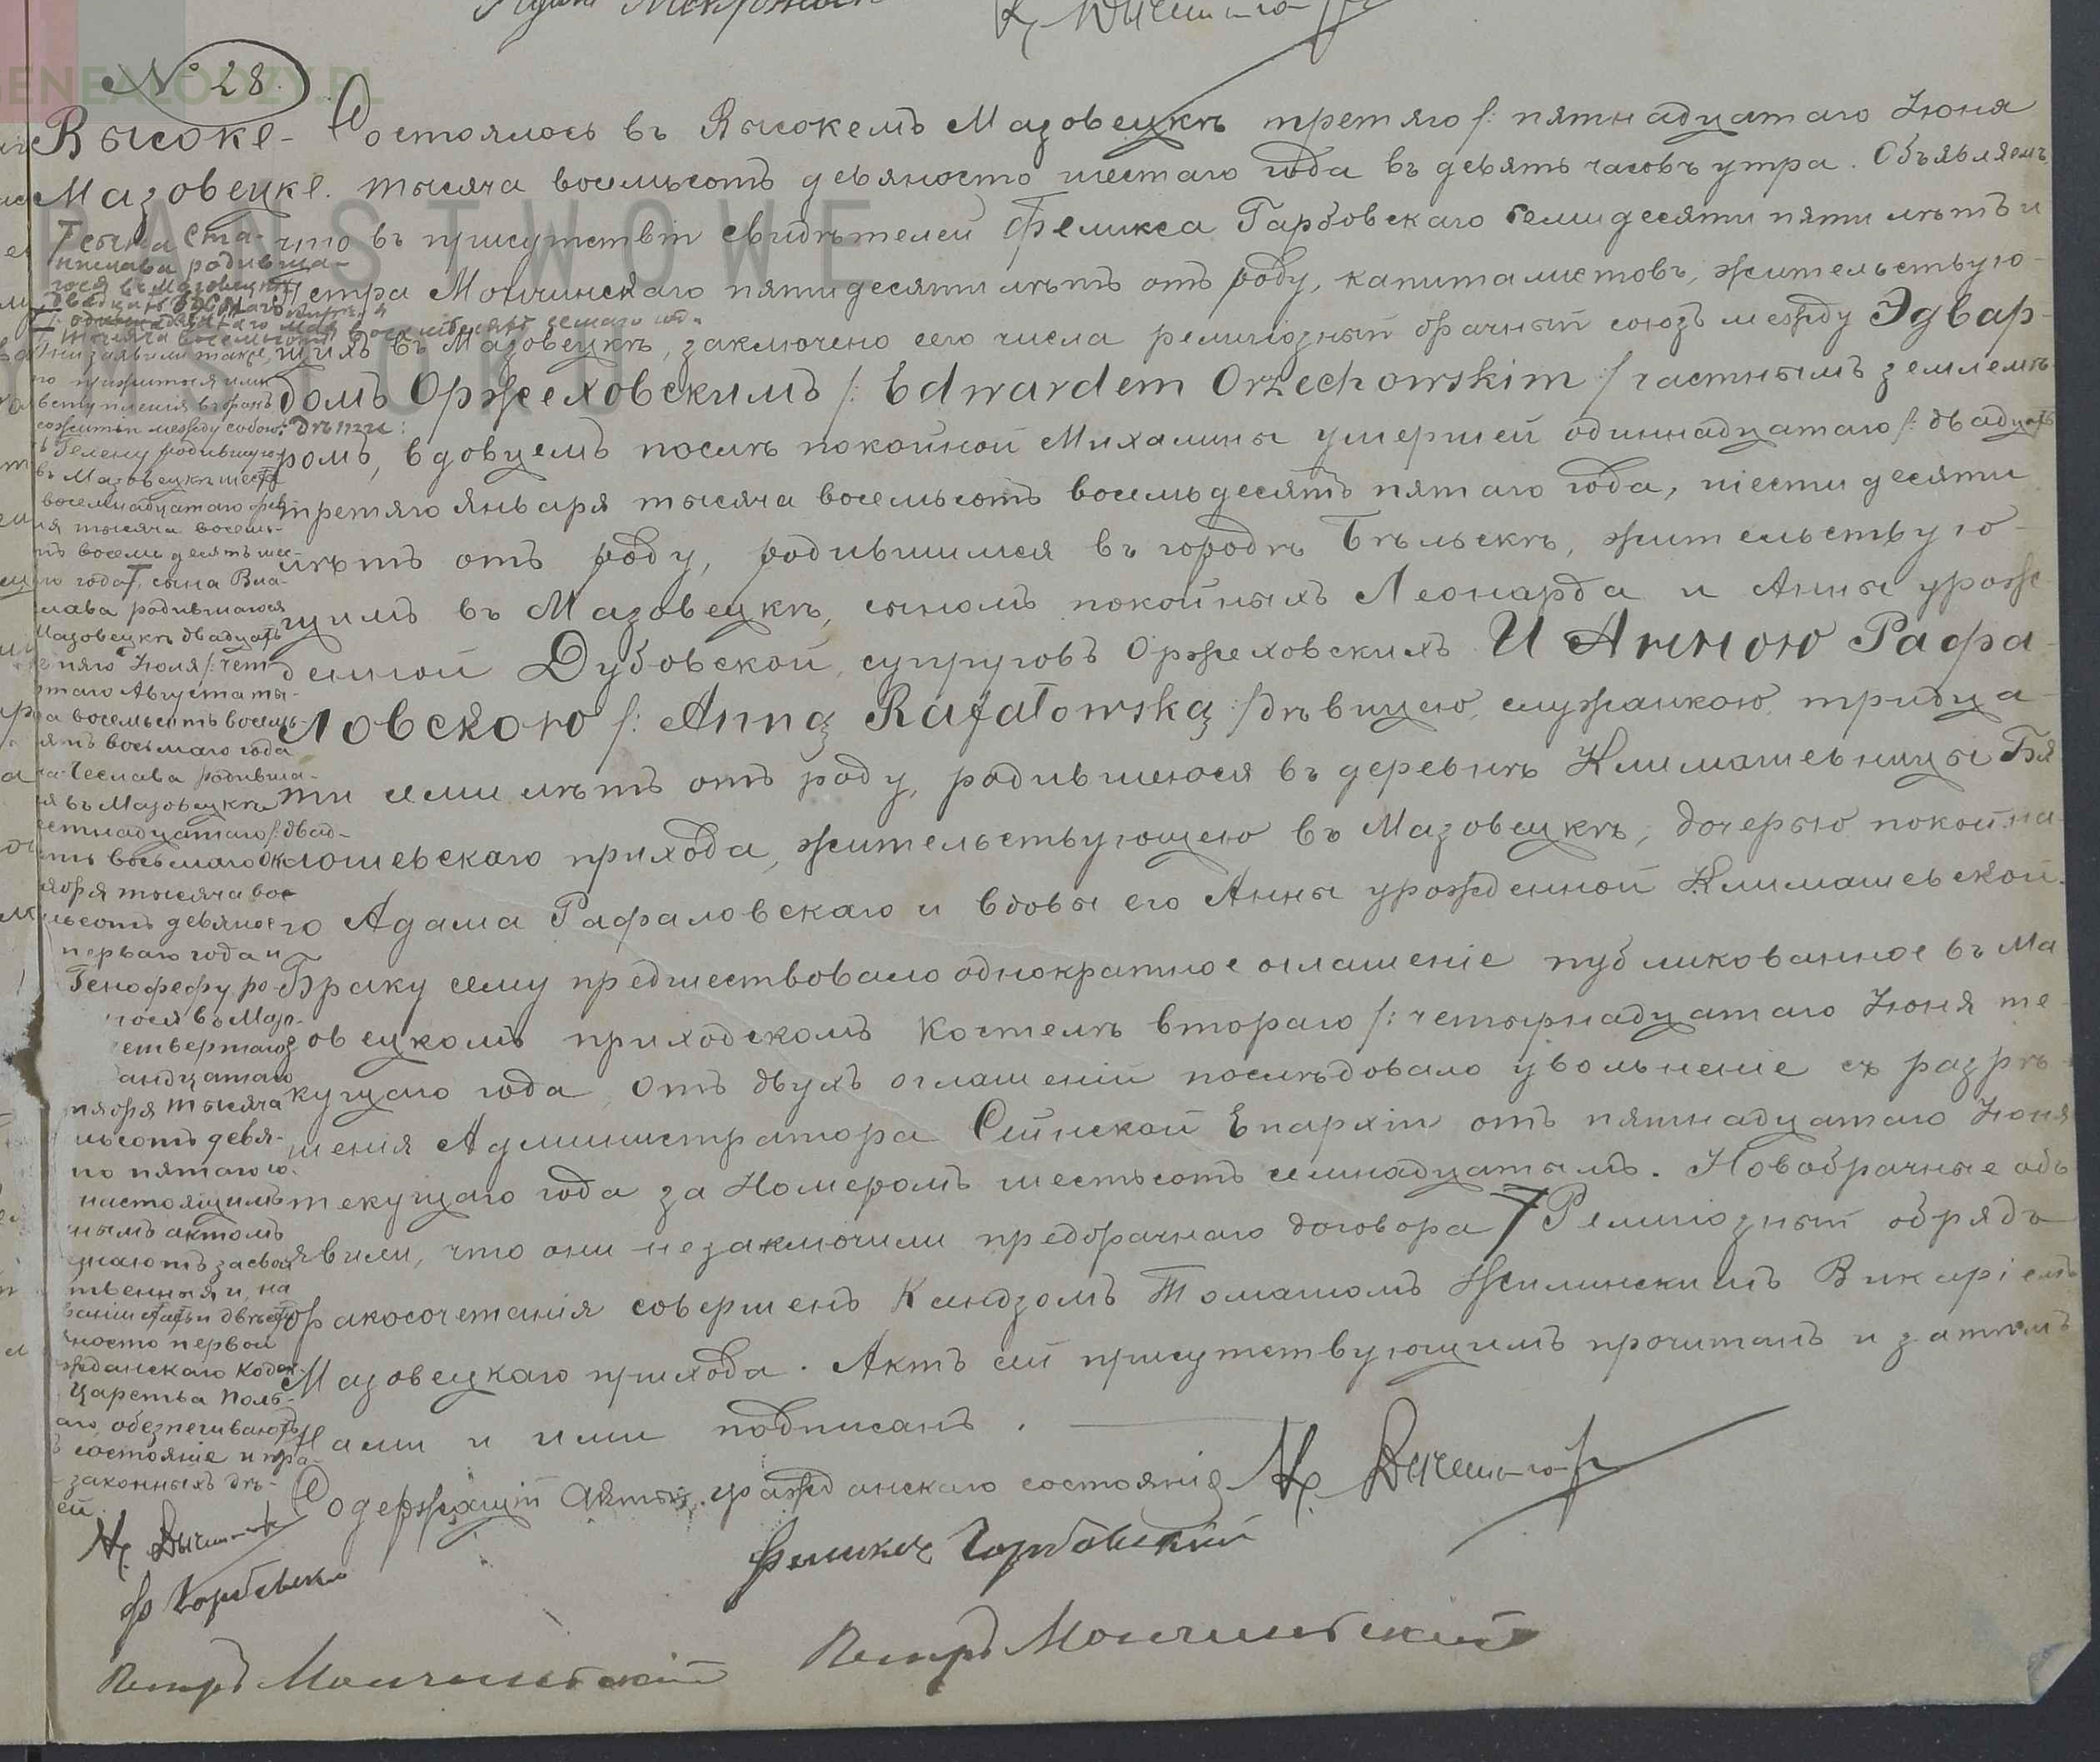 № 28.
Высоке-
Мазовецке.
Состоялось въ Высокемъ Мазовецкѣ третяго /: пятнадцатаго Іюня
тысяча восемьсотъ девяносто шестаго года въ девять часовъ утра. Объявляемъ,
что въ присутствіи свидѣтелей Феликса Гарбовскаго семидесяти пяти лѣтъ и
Петра Мончинскаго пятидесяти лѣтъ отъ роду, капиталистовъ, жительствую-
щихъ въ Мазовецкѣ, заключено сего числа религіозный брачный союзъ между Эдвар-
домъ Оржеховскимъ /: Edwardem Orzechowskim :/ частнымъ землемѣ-
ромъ, вдовцемъ послѣ покойной Михалины умершей одиннадцатаго /: двадцать
третяго Января тысяча восемьсотъ восемьдесятъ пятаго года, шестидесяти
лѣтъ отъ роду, родившимся въ городѣ Бѣльскѣ, жительствую-
щимъ въ Мазовецкѣ, сыномъ покойныхъ Леонарда и Анны урож-
денной Дубовской, супруговъ Оржеховскихъ И Анною Рафа-
ловскою /: Anną Rafałowską :/ дѣвицею, служанкою, тридца-
ти семи лѣтъ отъ роду, родившеюся въ деревнѣ Климашевницы Бя-
лошевскаго прихода, жительствующею въ Мазовецкѣ, дочерью покойна-
го Адама Рафаловскаго и вдовы его Анны урожденной Климашевской.
Браку сему предшествовало однократное оглашеніе публикованное въ Ма
зовецкомъ приходскомъ костелѣ втораго /: четырнадцатаго Іюня те-
кущаго года, отъ двухъ оглашеній послѣдовало увольненіе съ разрѣ-
шенія Администратора Сейнской Епархіи отъ пятнадцатаго Іюня
текущаго года за Номеромъ шестьсотъ семнадцатымъ. Новобрачные объ
явили, что они незаключили предбрачнаго договора Религіозный обрядъ
бракосочетанія совершенъ Ксендзомъ Томашомъ Жилинскимъ Викаріемъ
Мазовецкаго прихода. Актъ сей присутствующимъ прочитанъ и затѣмъ
Нами и ими подписанъ.
Содержащій Акты гражданскаго состоянія
Феликсъ Гарбовскій
Петръ Мончинскій
сына Ста-
нислава родивша-
гося въ Мазовецкѣ
Они заявили также,
вступленія въ бракъ
сожитіи между собою: дѣти:
Гелену родившуюся
въ Мазовецкѣ
восемнадцатаго
тысяча восемь-
восемь десятъ шес-
года, сына Вла-
слава родившагося
Мазовецкѣ двадцать
Іюля /: чет-
таго Августа ты-
восемьсотъ восемь-
восьмаго года
Чеслава родивша-
въ Мазовецкѣ
/: двад-
восьмаго Ок-
тября тысяча вос-
сотъ девяносто
перваго года и
Генофефу ро-
въ Маз-
четвертаго
тысяча
сотъ девя-
но пятаго го-
настоящимъ
нымъ актомъ
знаютъ за свои
твенныя и, на
статьи двѣсти
носто первой
гражданскаго Кодек.
Царства Поль-
обезпечиваютъ
состояніе и пра-
законныхъ дѣ-
ей
Ф Гарбовскій
Петръ Мончинскій
GENEALODZY.PL